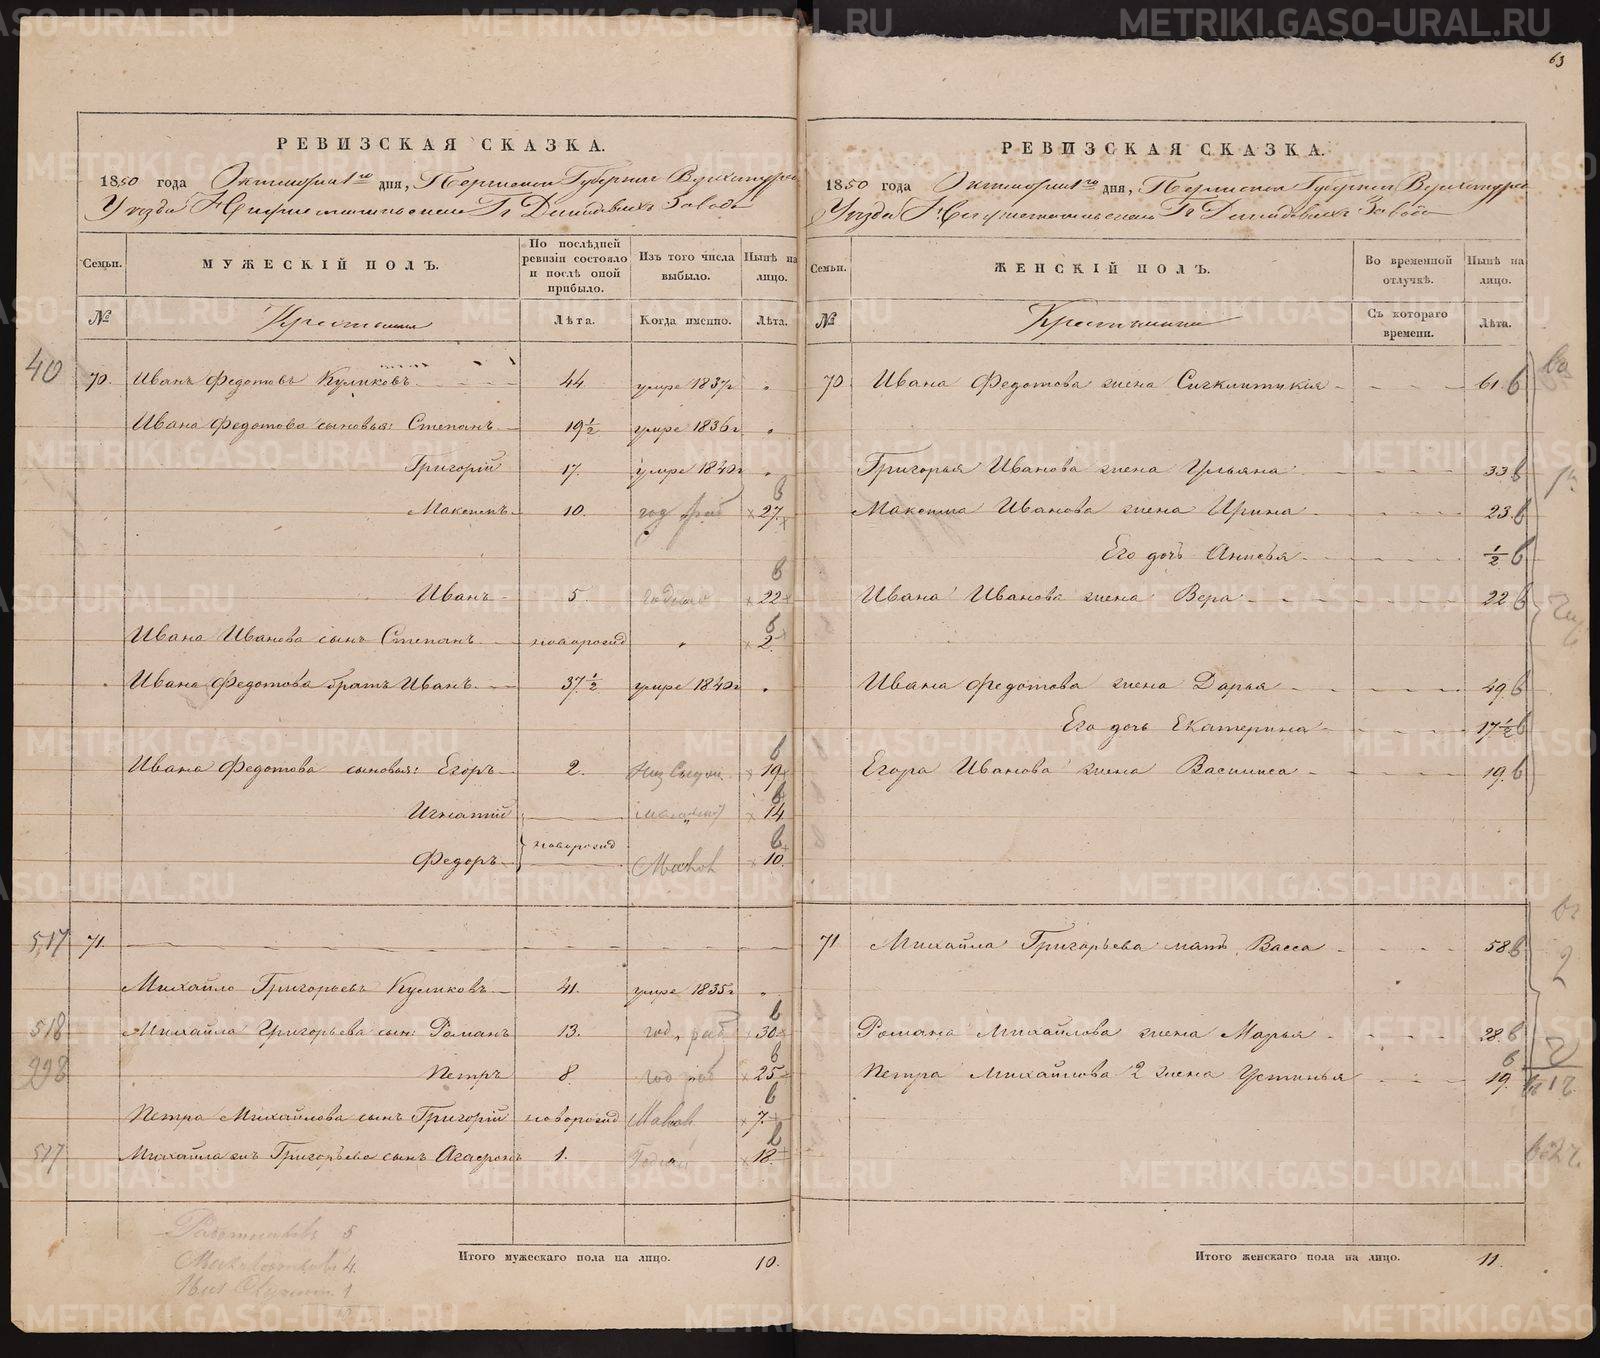 63
РЕВИЗСКАЯ СКАЗКА.
1850 года Октября 1го дня, Пермской Губернии Верхотурска
Уезда Нижнетагильскаго Гг Демидовыхъ Завода
Семьи.
МУЖЕСКІЙ ПОЛЪ.
По послѣдней ревизіи состояло и послѣ оной прибыло.
Изъ того числа выбыло.
Нынѣ на лицо.
№
Крестьяне
Лѣта.
Когда именно.
Лѣта.
40 70. Иванъ Федотовъ Куликовъ 44. умре 1837г "
Ивана Федотова сыновья: Степанъ 19 1/2 умре 1836г "
Григорій 17. умре 1840г "
Максимъ 10. год раб × 27. в
Иванъ 5. × 22 в
Ивана Иванова сынъ Степанъ новорожд " × 2 в
Ивана Федотова братъ Иванъ 37 1/2 умре 1840г "
Ивана Федотова сыновья: Егоръ 2. × 19 в
Игнатій × 14 в
новорожд
Федоръ × 10. в
517 71.
Михайло Григорьевъ Куликовъ 41. умре 1835г "
518 Михайла Григорьева сын: Романъ 13. год раб × 30 в
Петръ 8. год раб × 25 в
Петра Михайлова сынъ Григорій новорожд × 7. в
517 Михайла Григорьева сынъ Агафонъ 1. × 18. в
5
4
1
Итого мужескаго пола на лицо. 10.
РЕВИЗСКАЯ СКАЗКА.
1850 года Октября 1го дня, Пермской Губерніи Верхотурско
Уезда Нижнетагильскаго Гг Демидовыхъ Завода
Семьи.
ЖЕНСКІЙ ПОЛЪ.
Во временной отлучкѣ.
Нынѣ на лицо.
№
Крестьянки
Съ котораго времени.
Лѣта.
70 Ивана Федотова жена Сигклитикія 61. в
Григорья Иванова жена Ульяна 33 в
Максима Иванова жена Ирина 23. в
Его дочь Анисья 1/2 в
Ивана Иванова жена Вера 22 в
Ивана Федотова жена Дарья 49 в
Его дочь Екатерина 17 1/2 в
Егора Иванова жена Васиниса 19. в
71. Михайла Григорьева мать Васса 58 в
Романа Михайлова жена Марья 28. в
Петра Михайлова 2 жена Устинья 19. в
Итого женскаго пола на лицо. 11.
METRIKI.GASO-URAL.RU